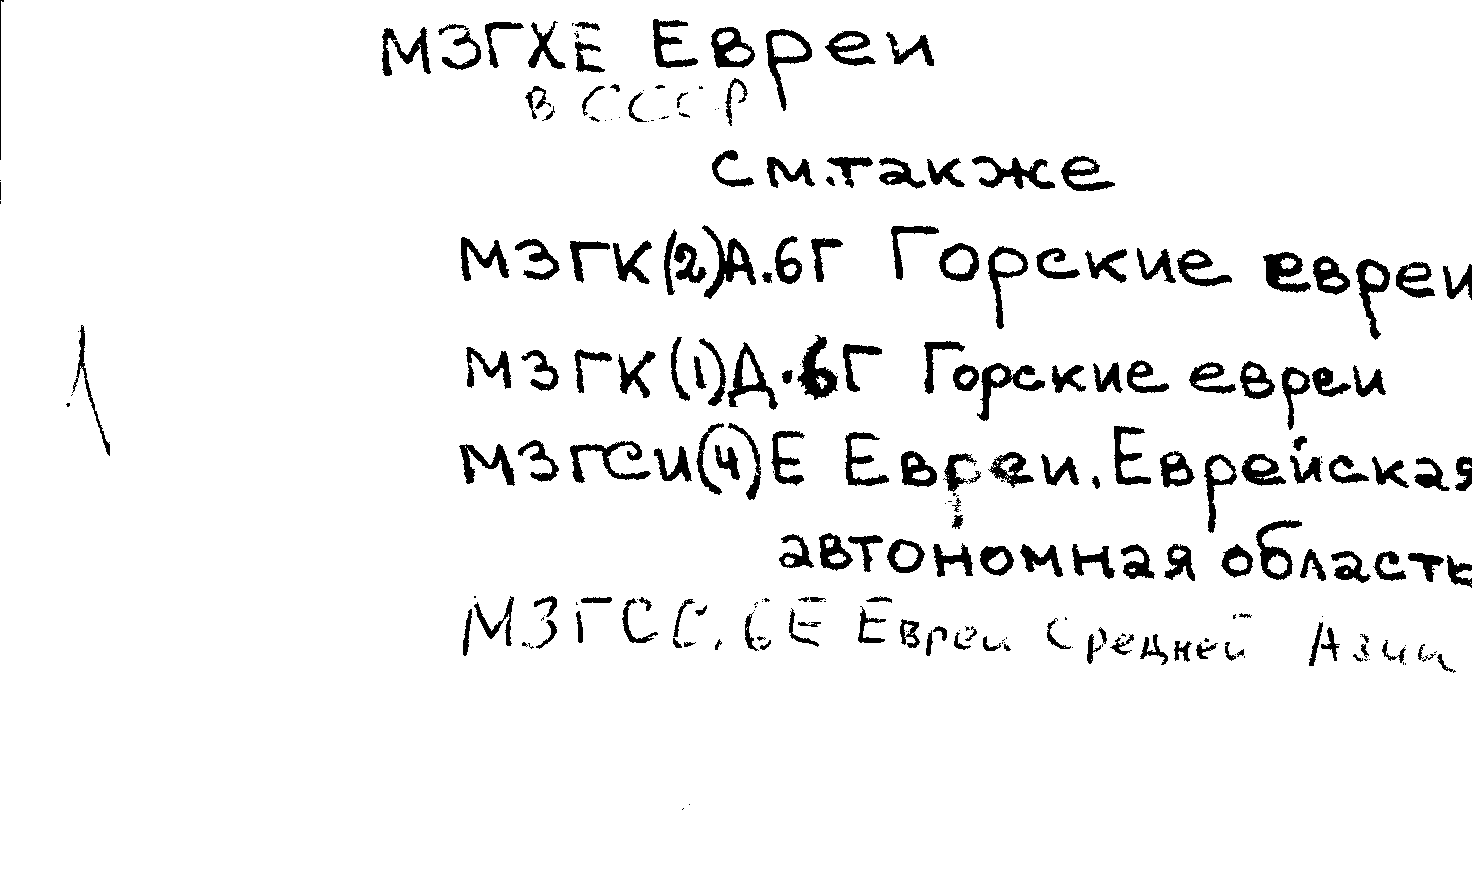 МЗГХЕ Евреи
в СССР
см.также
МЗГК(2)А.6Г Горские евреи
МЗГК(1)Д.6Г Горские евреи
МЗГСИ(4)Е Евреи. Еврейская
автономная область
МЗГСС.6Е Евреи Средней Азии